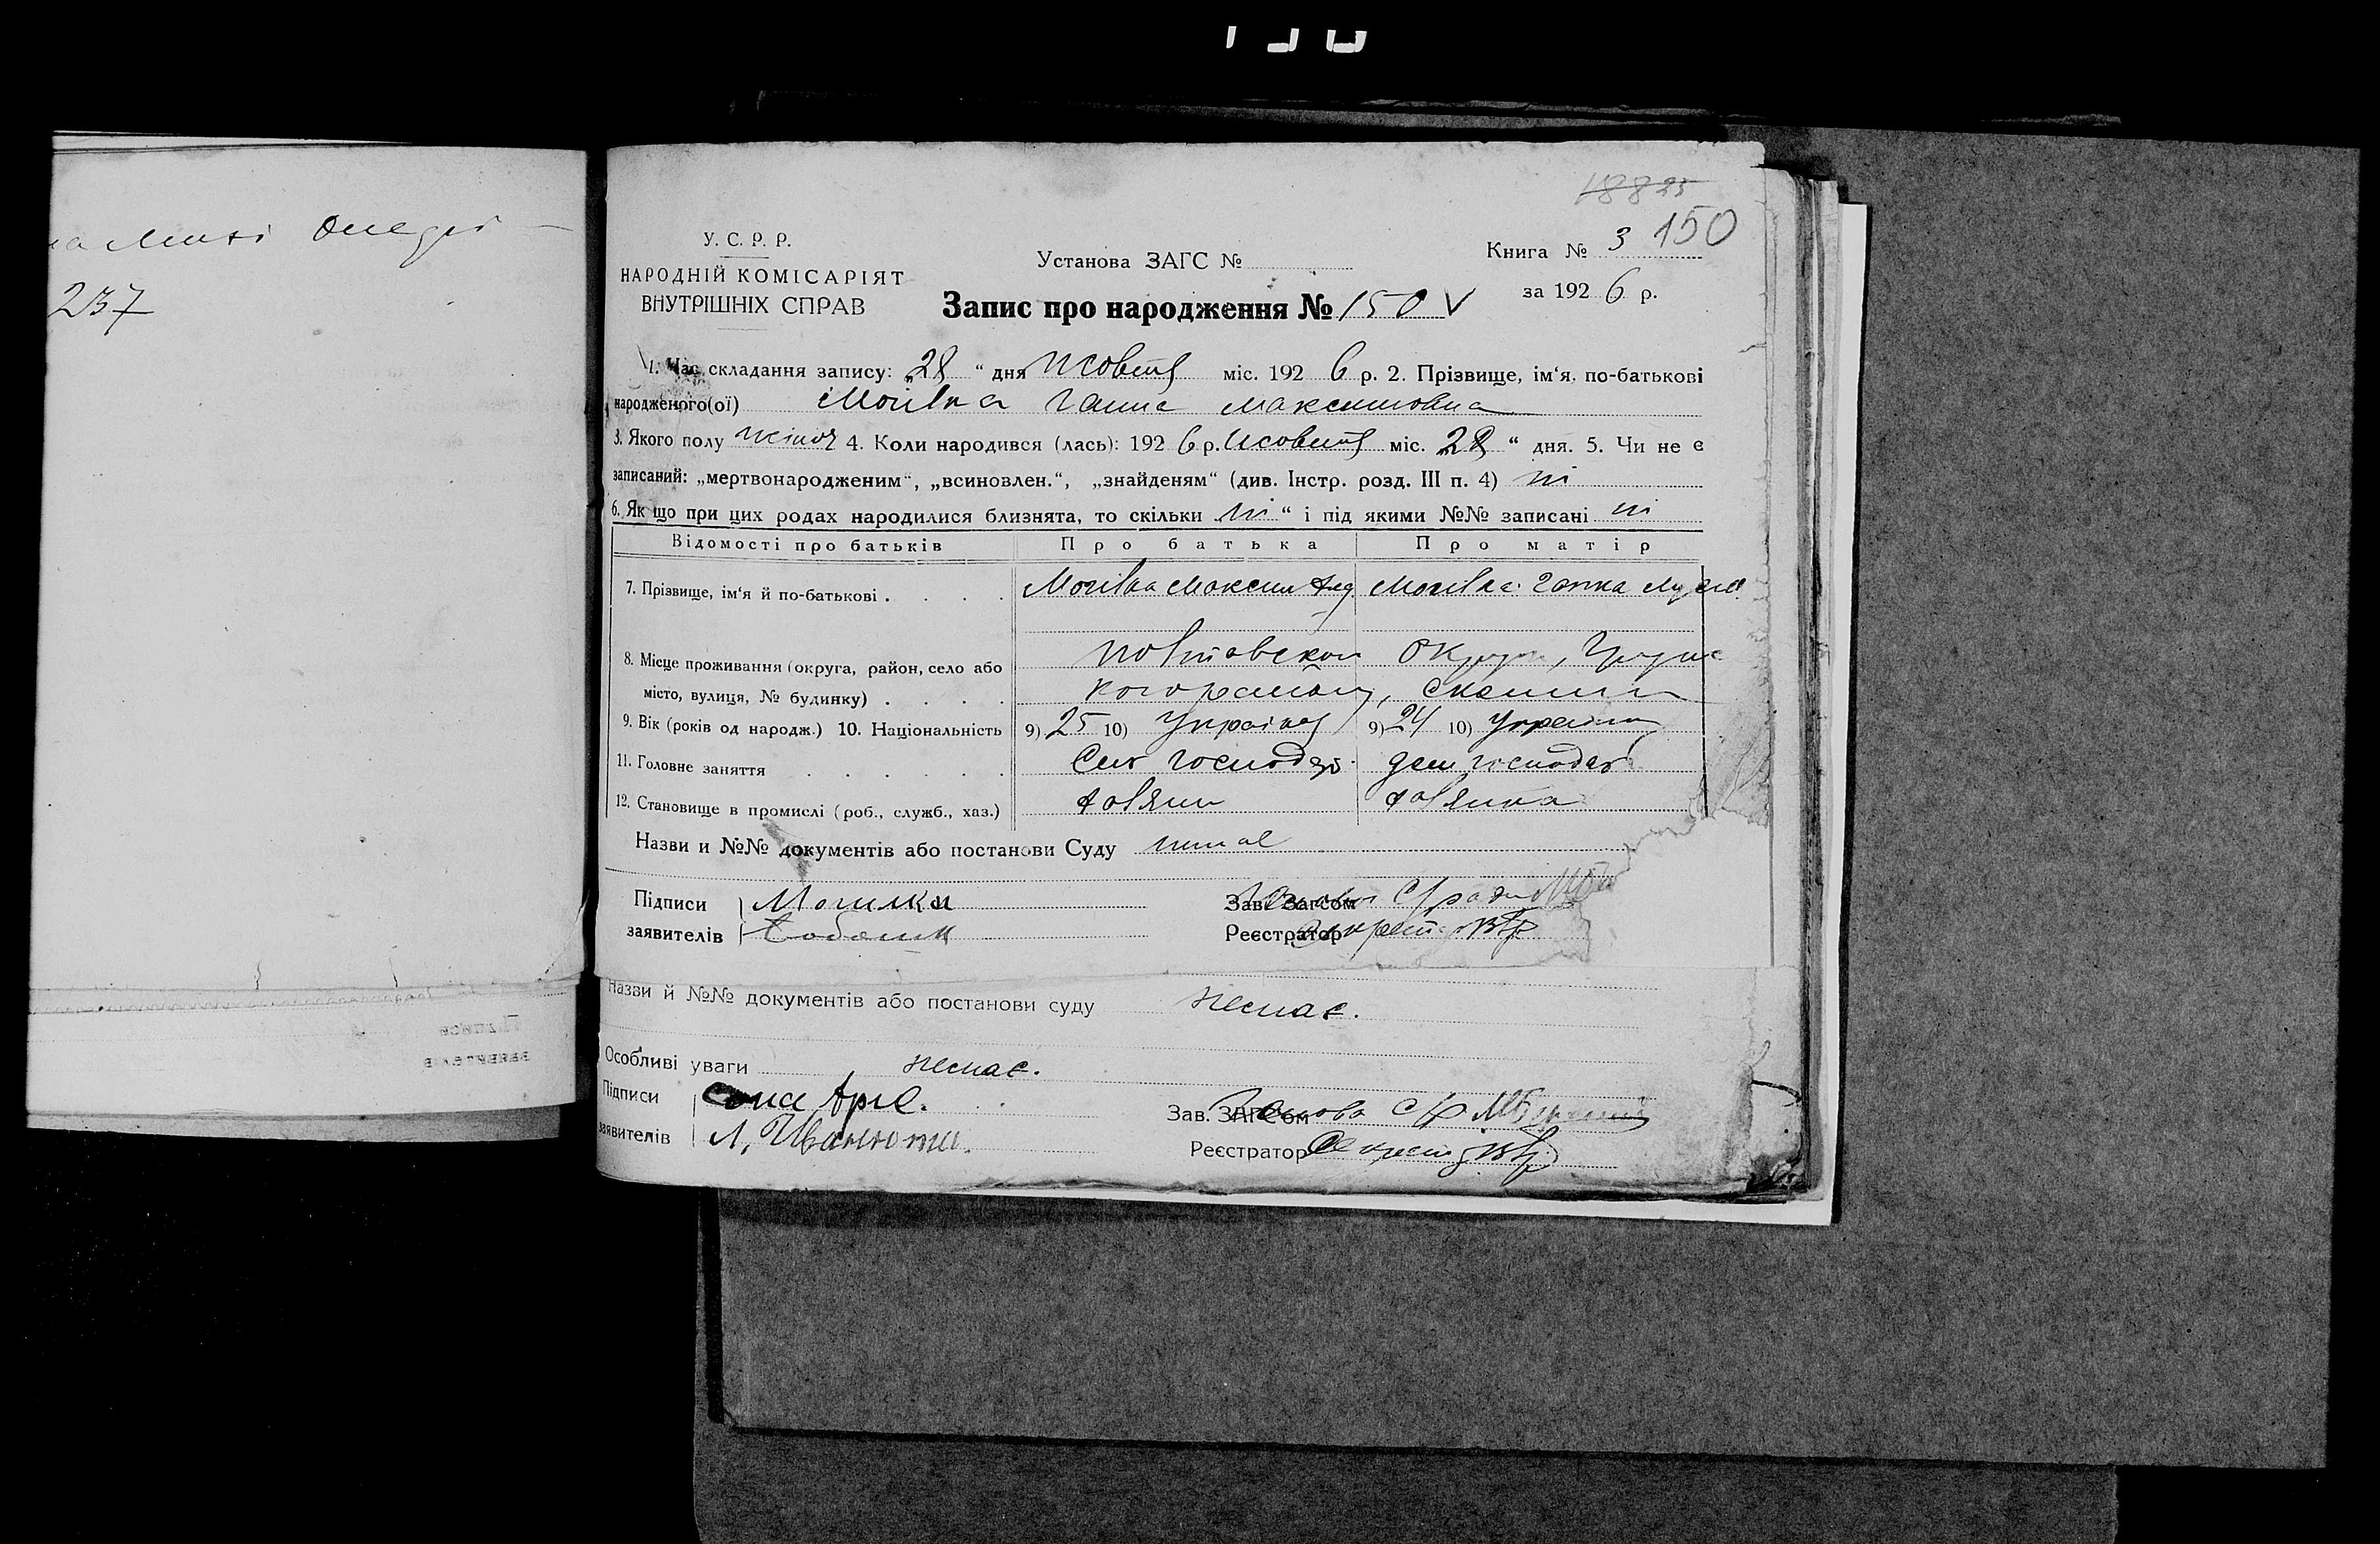 237
18825
150
У. С. Р. Р.
НАРОДНІЙ КОМІСАРІЯТ
ВНУТРІШНІХ СПРАВ
Установа ЗАГС №
Книга № 3
за 192 6 р.
Запис про народження № 150 V
1. Час складання запису: „28 “ дня Жовтня міс. 192 6 р. 2. Прізвище, ім‘я, по-батькові
народженого(ої) Могілка Ганна Максимовна
3. Якого полу жіноч 4. Коли народився (лась): 192 6 р. Жовтня міс. 28 “ дня. 5. Чи не є
записаний: „мертвонародженим“, „всиновлен.“, „знайденям“ (див. Інстр. розд. III п. 4) ні
6. Як що при цих родах народилися близнята, то скільки „ні“ і під якими №№ записані ні
Відомості про батьків Про батька Про матір
7. Прізвище, ім‘я й по-батькові . . . . Могілка Максим Могілка Гапка
8. Місце проживання (округа, район, село або Полтавскои Округи,
місто, вулиця, № будинку) . . . .
9. Вік (років од народж.) 10. Національність 9) 25 10) Україн 9) 24 10) Україн
11. Головне заняття . . . . . . Сил господар дом господар
12. Становище в промислі (роб., служб., хаз.)
Назви и №№ документів або постанови Суду немає
Підписи Могилка
заявителів
Зав. Загсом Голова С/ради
Реєстратор Секретар
Назви й №№ документів або постанови суду немає.
Особливі уваги немає.
Підписи
заявителів Л. Иванюта.
Зав. ЗАГСом Голова С/Р
Реєстратор Секретар